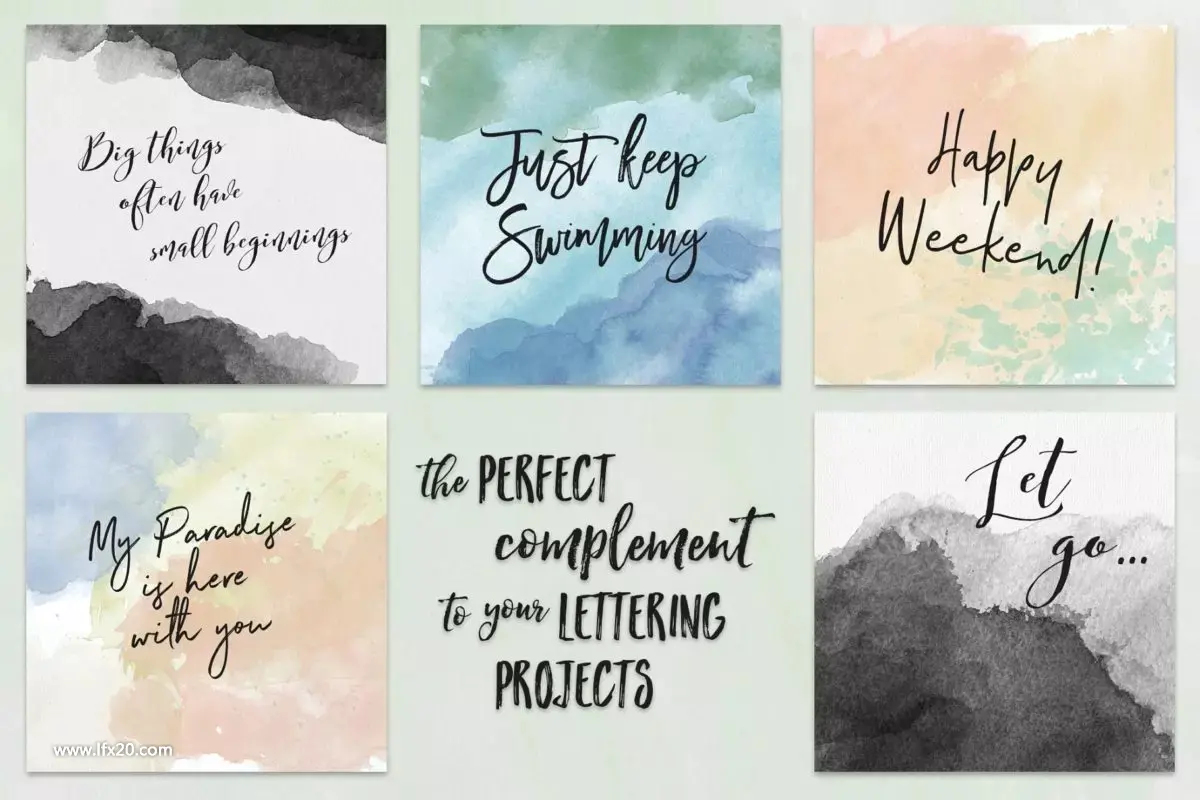 Big things
often have
small beginnings
Just keep
Swimming
Happy
Weekend!
My Paradise
is here
with you
www.lfx20.com
the PERFECT
complement
to your LETTERING
PROJECTS
Let
go...